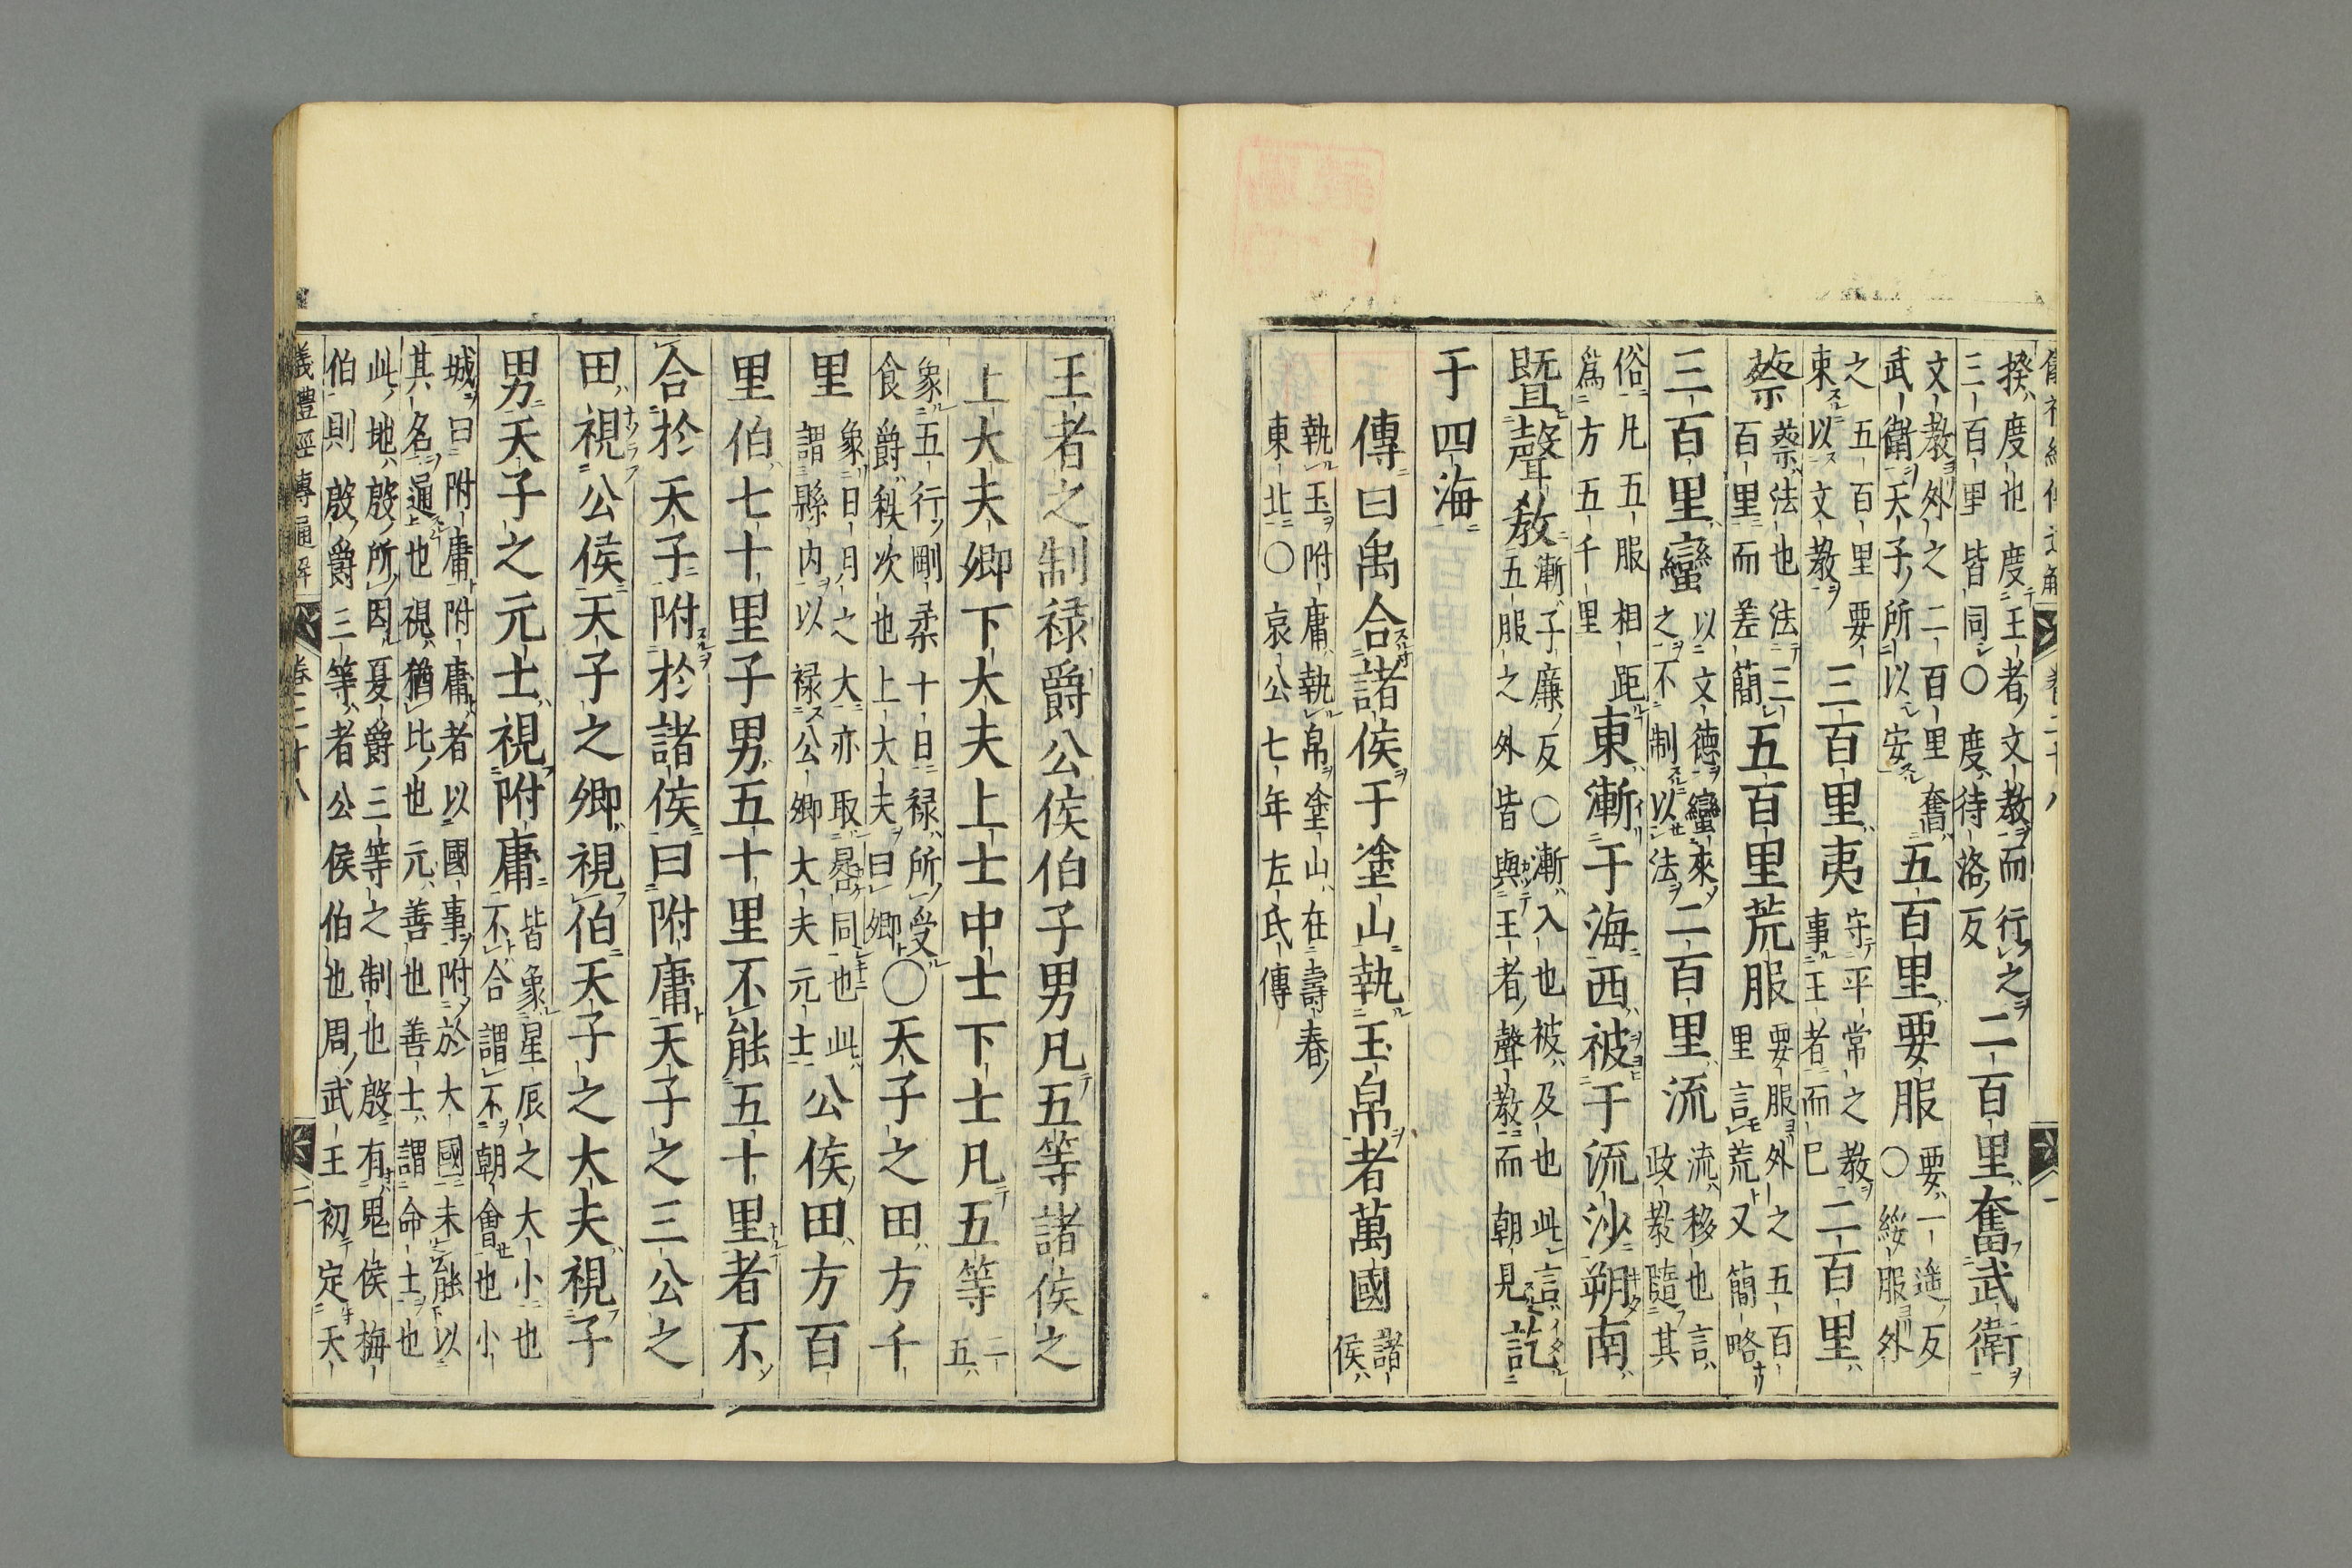 儀禮經傳通解 卷二十八 一
揆度也度王者文教而行之二百里奮武衛
三百里皆同〇度待洛反
文教外之二百里奮五百里要服要一遥反
武衛天子所以安〇綏服外
之五百里要三百里夷守平常之教二百里
束以文教事王者而已
蔡蔡法也法三五百里荒服要服外之五百
百里而差簡里言荒又簡略
三百里蠻以文德蠻來二百里流流移也言
之不制以法政教隨其
俗凡五服相距東漸于海西被于流沙朔南
爲方五千里
暨聲教漸子廉反〇漸入也被及也此言訖
五服之外皆與王者聲教而朝見
于四海
傳曰禹合諸侯于塗山執玉帛者萬國諸侯
執玉附庸執帛塗山在壽春
東北〇哀公七年左氏傳
王者之制禄爵公侯伯子男凡五等諸侯之
上大夫卿下大夫上士中士下士凡五等二五
象五行剛柔十日禄所受〇天子之田方千
食爵秩次也上大夫曰卿
里象日月之大亦取晷同也此公侯田方百
謂縣内以禄公卿大夫元士
里伯七十里子男五十里不能五十里者不
合於天子附於諸侯曰附庸天子之三公之
田視公侯天子之卿視伯天子之大夫視子
男天子之元士視附庸皆象星辰之大小也
不合謂不朝會也小
城曰附庸附庸者以國事附於大國未能以
其名通也視猶比也元善也善士謂命士也
此地殷所因夏爵三等之制也殷有鬼侯梅
伯則殷爵三等者公侯伯也周武王初定天
儀禮經傳通解 卷二十八 二